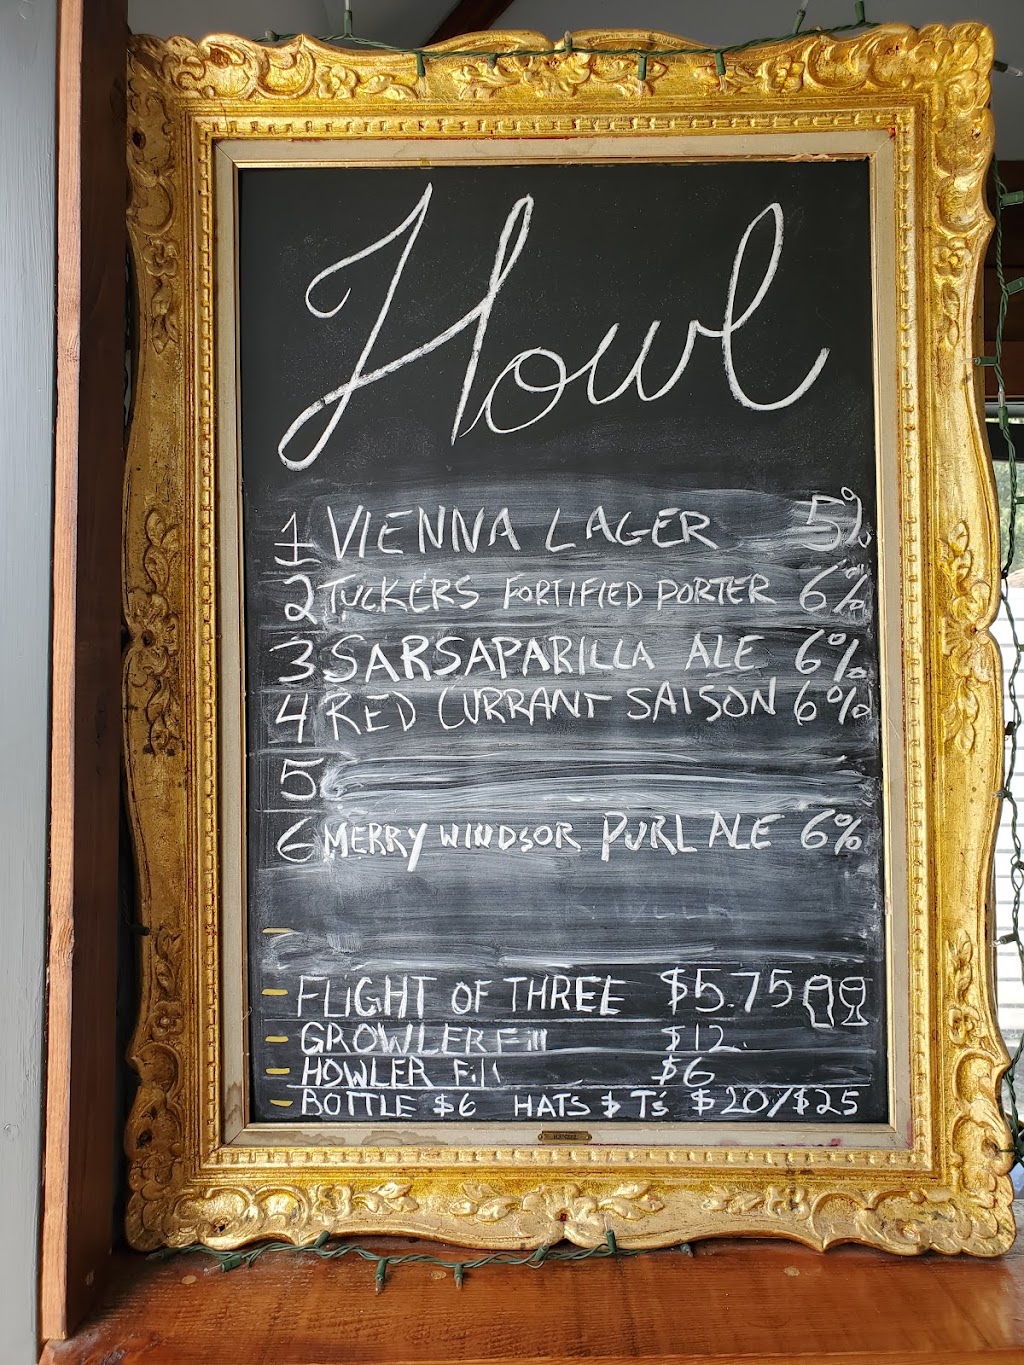 Howl
1 VIENNA LAGER 5%
2 TUCKER'S FORTIFIED PORTER 6%
3 SARSAPARILLA ALE 6%
4 RED CURRANT SAISON 6%
5
6 MERRY WINDSOR PURL ALE 6%
- FLIGHT OF THREE $5.75
- GROWLER Fill $12.
- HOWLER Fill $6
- BOTTLE $6 HATS & T's $20/$25